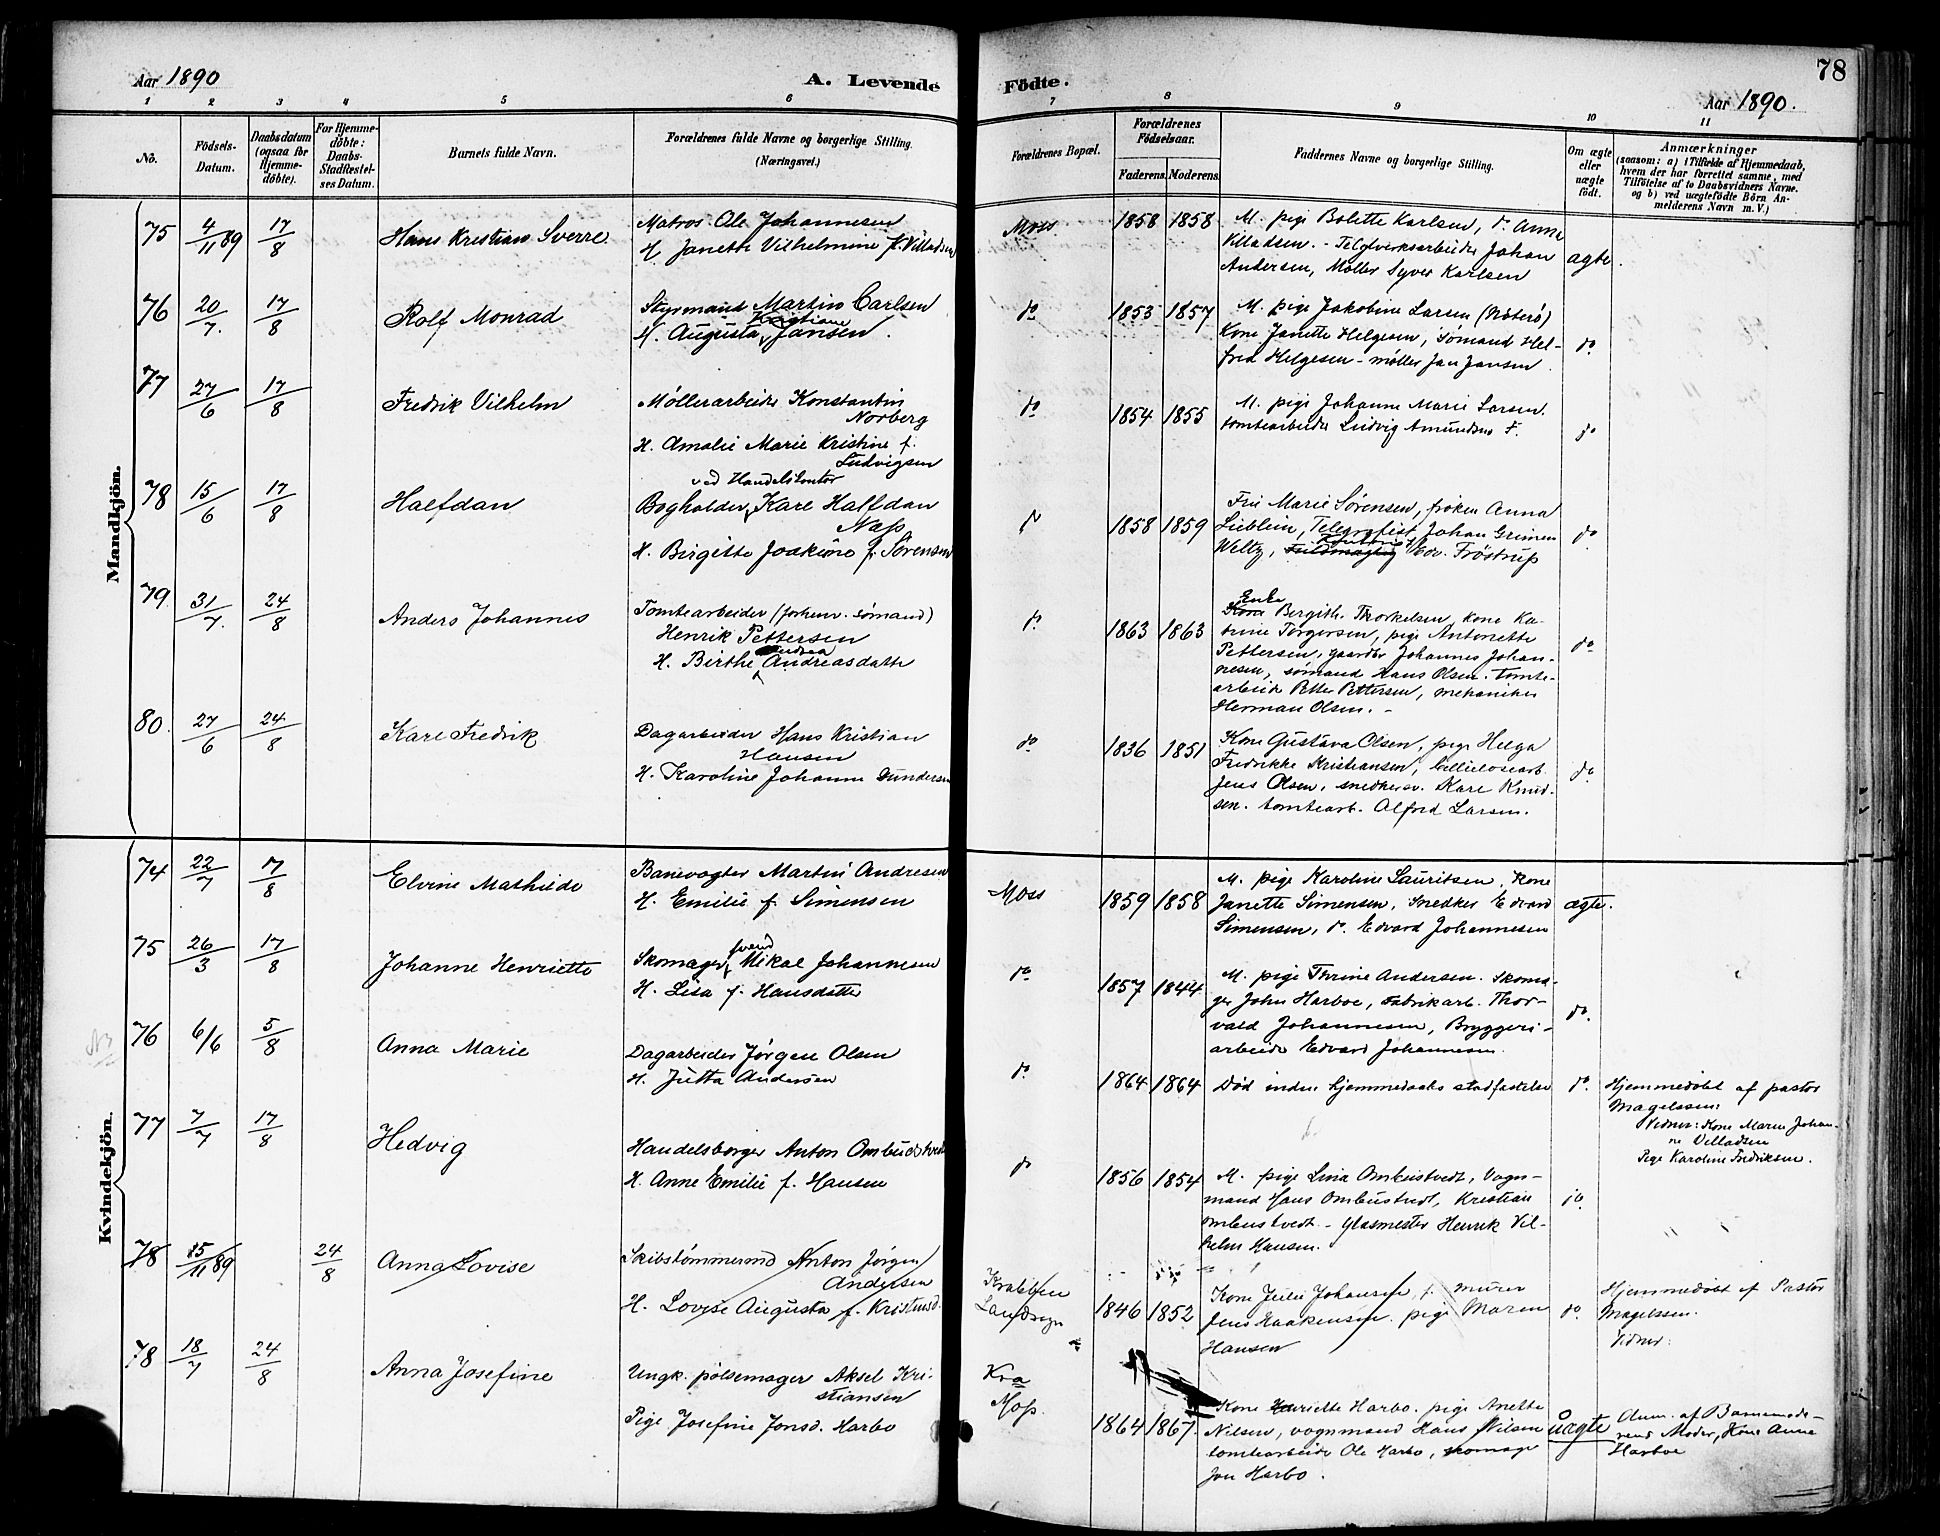 Aar 1890
A. Levende
1 2 3 4 5 6
No.
Födsels-
Datum.
Daabsdatum
(ogsaa for
Hjemme-
döbte).
For Hjemme-
döbte:
Daabs-
Stadfæstel-
ses Datum.
Barnets fulde Navn.
Forældrenes fulde Navne og borgerlige Stilling.
(Næringsvei.)
Mandkjön.
75 4/11 89 17/8 Hans Kristian Sverre
Matros Ole Johannesen
H. Janette Vilhelmine f. Villadsen
76 20/7. 17/8 Rolf Monrad
Styrmand Martin Carlsen
Kristiane
H. Augusta Jansen.
77 27/6 17/8 Fredrik Vilhelm
Møllerarbeider Konstantin
Norberg
H. Amalie Marie Kristine f.
Ludvigsen
78 15/6 17/8 Halfdan
ved Handelskontor
Bogholder Karl Halfdan
Nap
H. Birgitte Joakime f. Sørensen
79. 31/7. 24/8 Anders Johannes
Tomtearbeider (forhenv. sømand)
Henrik Pettersen
H. Birthe Andrea Andreasdatte
80. 27/6 24/8 Karl Fredrik
Dagarbeider Hans Kristian
Hansen
H. Karoline Johanne Gundersen
Kvindekjön.
74 22/7 17/8 Elvine Mathilde
Banevogter Martin Andresen
H. Emilie f. Simensen
75 26/3 17/8 Johanne Henriette
svend
Skomager Mikal Johannesen
H. Lisa f. Hansdatter
76 6/6 5/8 Anna Marie
Dagarbeider Jørgen Olsen
H. Jutta Andersen
77 7/7 17/8 Hedvig
Handelsborger Anton Ombustvedt
H. Anne Emilie f. Hansen
78 15/11 89 24/8 Anna Lovise
Skibstømmermd Anton Jørgen
Andersen
H. Lovise Augusta f. Kristensd.
78 18/7 24/8 Anna Josefine
Ungk. pølsemager Aksel Kri-
stiansen
Pige Josefine Jonsd. Harbo
Födte.
78
Aar 1890.
7 8 9 10 11
Forældrenes Bopæl.
Forældrenes
Födselsaar.
Faderens. Moderens.
Faddernes Navne og borgerlige Stilling.
Om ægte
eller
uægte
födt.
Anmærkninger
(saasom: a) i Tilfælde af Hjemmedaab,
hvem der har forrettet samme, med
Tilföielse af to Daabsvidners Navne.
og b) ved uægtefödte Börn An-
melderens Navn m. V.)
Moss 1858 1858 M. pige Bolette Karlsen, do. Anna
Villadsen. - Teglverksarbeider Johan
Andersen, Møller Syver Karlsen
ægte.
do 1853 1857 M. pige Jakobine Larsen (Nøterø)
Kone Janette Helgesen, Sømand Hel-
fred Helgesen - møller Jan Jansen
do
do 1854 1855 M. pige Johanne Marie Larsen.
tomtearbeider Ludvig Amundsen F.
do
do 1858 1859 Fru Marie Sørensen, frøken Anna
Lieblein, Telegrafist Johan Grimen
Weltz, Edv. Frøstrup
do
do 1863 1863 Enke
Kone Bergith. Thorkelsen, kone Ka-
trine Torgersen, pige Antonette
Pettersen, gaardbr Johannes Johan-
nesen, sømand Hans Olsen. tomte-
arbeid. Petter Pettersen, mekaniker
Herman Olsen. -
do
do 1836 1851 Kone Gustava Olsen, pige Helga
Fredrikke Kristiansen, Cellulosearb.
Jens Olsen, snedkersv. Karl Knud-
sen. tomtearb. Alfred Larsen.
do
Moss 1859 1858 M. pige Karoline Lauritsen, Kone
Janette Simensen, Snedker Edvard
Simensen, do. Edvard Johannesen
ægte.
do 1857 1844 M. pige Thrine Andersen. Skoma-
ger John Harboe, Fabrikarb. Thor-
vald Johannesen, Bryggeri-
arbeider Edvard Johannesen.
do.
do 1864 1864 Død inden hjemmedaabs stadfæstelse do.
Hjemmedøbt af pastor
Magelssen:
Vidner: Kone Maren Johan-
ne Villadsen
Pige Karoline Fredriksen.
do 1856 1854 M. pige Lina Ombustvedt, Vogn-
mand Hans Ombustvedt, Kristian
Ombustvedt - Glasmester Henrik Vil-
helm Hansen.
do.
Krabben
Landsogn
1846 1852 Kone Julie Johansen, f. murer
Jens Haakensen. pige Maren
Hansen
do.
Hjemmedøbt af Pastor
Magelssen.
Vidner:
Kra
Moss.
1864 1867. Kone Henriette Harbo. pige Anette
Nilsen, vognmand Hans Nilsen
tomtearbeider Ole Harbo, skomager
Jon Harbo.
uægte
Anm. af Barnemode-
rens Moder, Kone Anne
Harboe